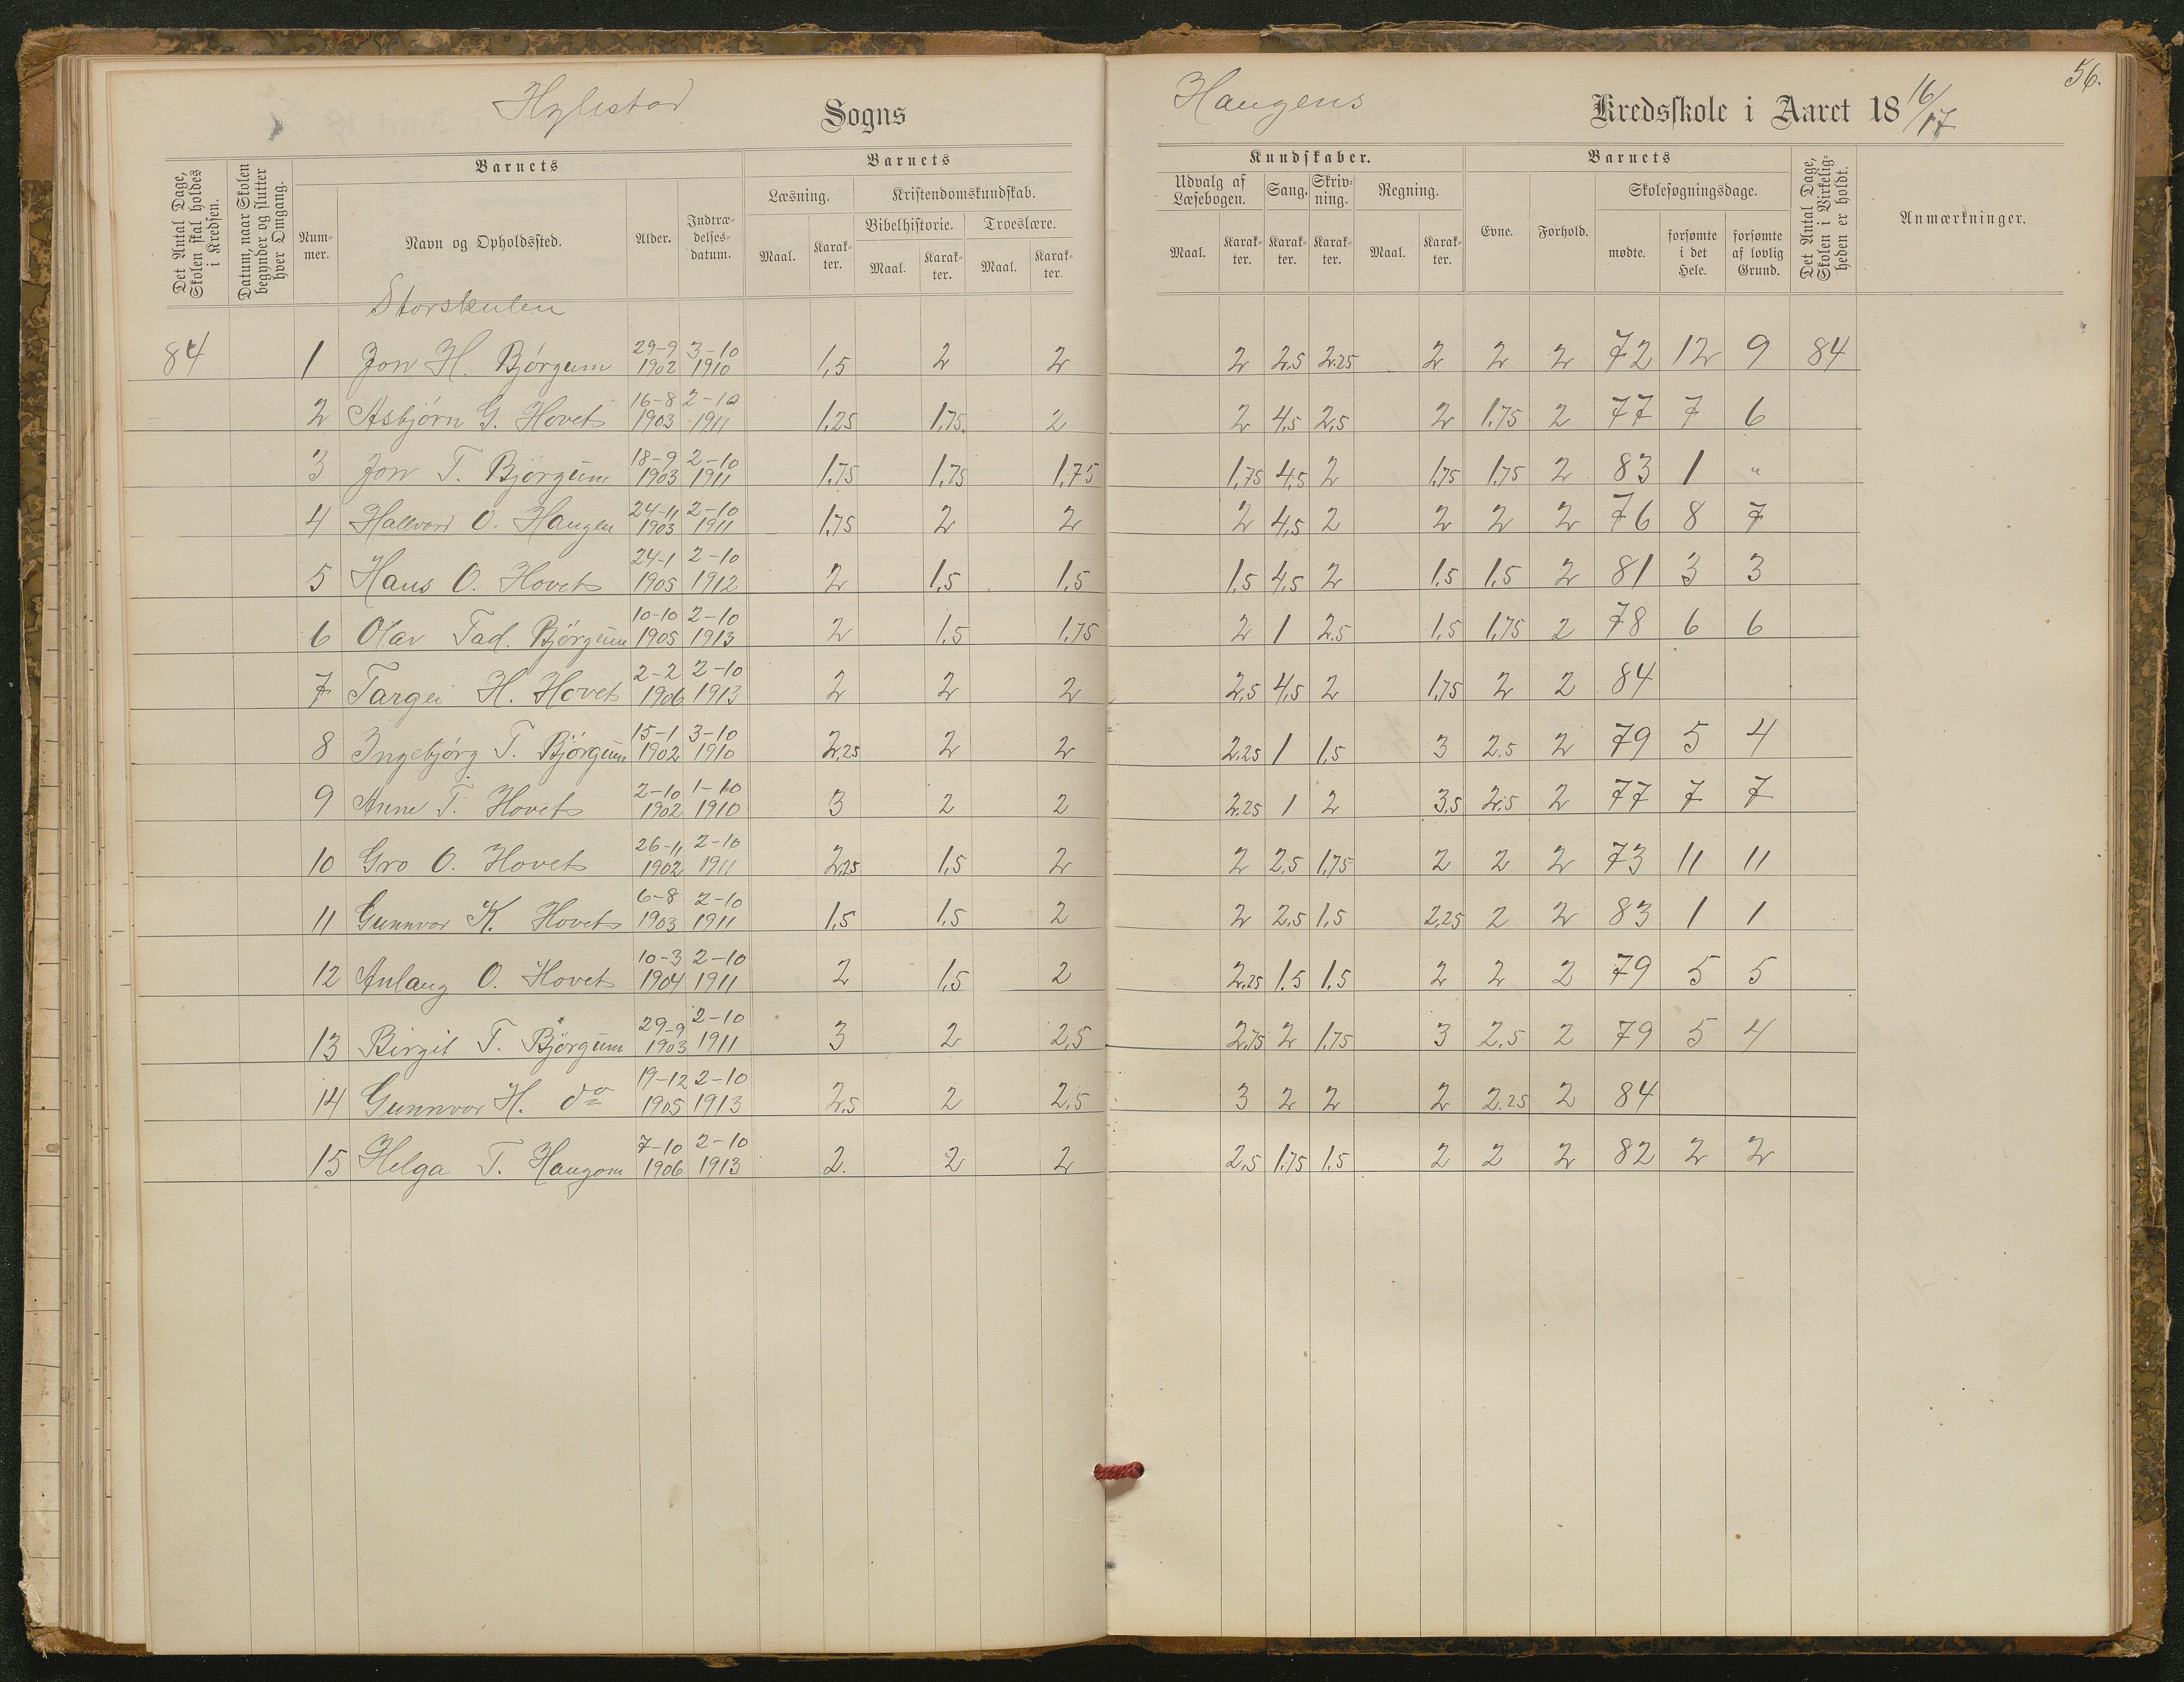 56.
Hylestad Sogns Haugens Kredsskole i Aaret 18 16/17
Det Antal Dage, Skolen skal holdes i Kredsen.
Datum, naar Skolen begynder og slutter hver Omgang.
Barnets
Nummer.
Navn og Opholdssted.
Alder.
Indtrædelsesdatum.
Barnets
Læsning.
Maal.
Karakter.
Kristendomskundskab.
Bibelhistorie.
Maal.
Karakter.
Troeslære.
Maal.
Karakter.
Kundskaber.
Udvalg af Læsebogen.
Maal.
Karakter.
Sang.
Karakter.
Skrivning.
Karakter.
Regning.
Maal.
Karakter.
Barnets
Evne.
Forhold.
Skolesøgningsdage.
mødte.
forsømte i det Hele.
forsømte af lovlig Grund.
Det Antal Dage, Skolen i Virkeligheden er holdt.
Anmærkninger.
Storskulen
84 1 Jon H. Bjórgum 29-9 1902 3-10 1910 1,5 2 2 2 2,5 2,25 2 2 2 72 12 9 84
2 Asbjórn G. Hovet 16-8 1903 2-10 1911 1,25 1,75 2 2 4,5 2,5 2 1,75 2 77 7 6
3 Jon T. Bjórgum 18-9 1903 2-10 1911 1,75 1,75 1,75 1,75 4,5 2 1,75 1,75 2 83 1 "
4 Hallvard O. Haugen 24-11 1903 2-10 1911 1,75 2 2 2 4,5 2 2 2 2 76 8 7
5 Hans O. Hovet 24-1 1905 2-10 1912 2 1,5 1,5 1,5 4,5 2 1,5 1,5 2 81 3 3
6 Olav Tad. Bjórgum 10-10 1905 2-10 1913 2 1,5 1,75 2 1 2,5 1,5 1,75 2 78 6 6
7 Targei H. Hovet 2-2 1906 2-10 1913 2 2 2 2,5 4,5 2 1,75 2 2 84
8 Ingebjórg T. Bjórgum 15-1 1902 3-10 1910 2,25 2 2 2,25 1 1,5 3 2,5 2 79 5 4
9 Anne T. Hovet 2-10 1902 1-10 1910 3 2 2 2,25 1 2 3,5 2,5 2 77 7 7
10 Gro O. Hovet 26-11 1902 2-10 1911 2,25 1,5 2 2 2,5 1,75 2 2 2 73 11 11
11 Gunnvor K. Hovet 6-8 1903 2-10 1911 1,5 1,5 2 2 2,5 1,5 2,25 2 2 83 1 1
12 Aulaug O. Hovet 10-3 1904 2-10 1911 2 1,5 2 2,25 1,5 1,5 2 2 2 79 5 5
13 Birgit T. Bjórgum 29-9 1903 2-10 1911 3 2 2,5 2,75 2 1,75 3 2,5 2 79 5 4
14 Gunnvor H. do 19-12 1905 2-10 1913 2,5 2 2,5 3 2 2 2 2,25 2 84
15 Helga T. Haugom 7-10 1906 2-10 1913 2. 2 2 2,5 1,75 1,5 2 2 2 82 2 2